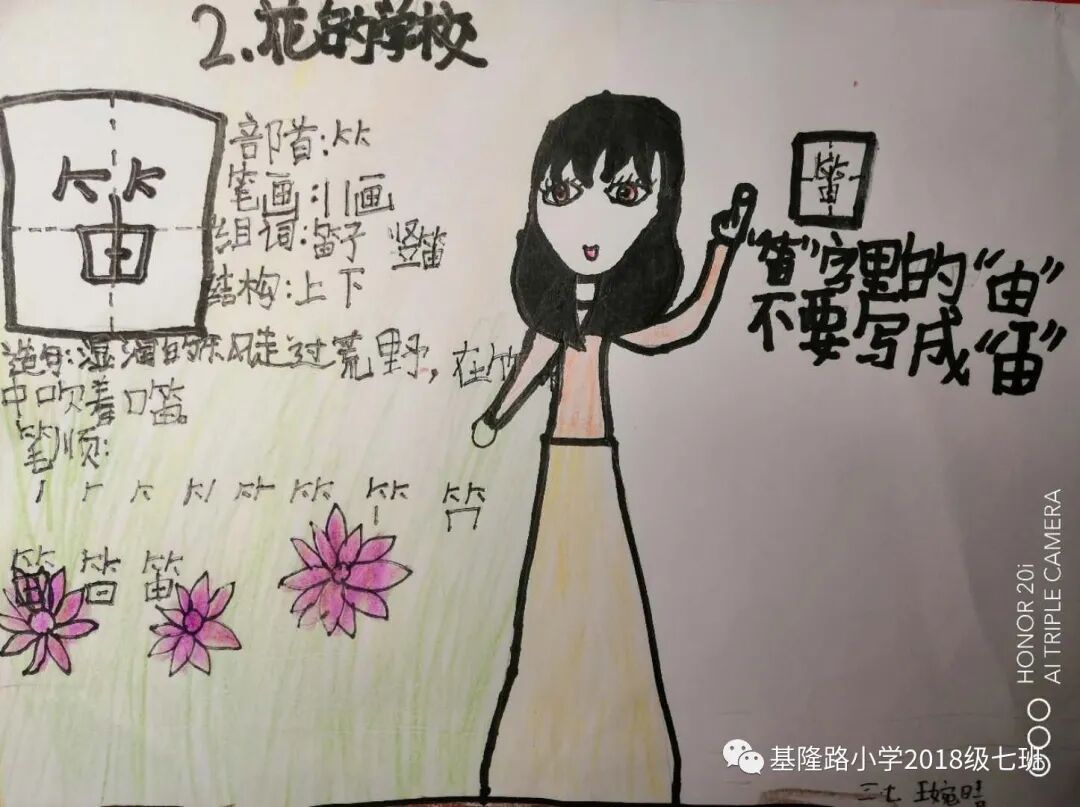 2.花的学校
笛
部首:⺮
笔画:11画
组词:笛子 竖笛
结构:上下
造句:湿润的东风走过荒野,在竹
中吹着口笛。
笔顺:
笛
"笛"字里的"由"
不要写成"笛"
HONOR 20i
AI TRIPLE CAMERA
基隆路小学2018级七班
三七